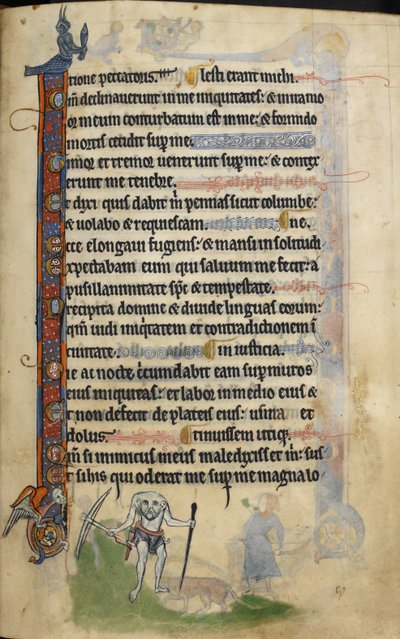 tione peccatoris. lesti erant michi.
Qm̄ declinauerunt in me iniquitates: & in ira mo
Cor meum conturbatum est in me: & formido
mortis cecidit sup me.
Timor et tremor uenerunt sup me: & contex
erunt me tenebre.
Et dixi quis dabit m̄ pennas sicut columbe:
& uolabo & requiescam. ne.
Ecce elongaui fugiens: & mansi in solitudi
Expectabam eum qui saluum me fecit: a
pusillanimitate sp̄s & tempestate.
Precipita domine & diuide linguas eorum:
qm̄ uidi iniq̄tatem et contradictionem ī
ciuitate. in iusticia.
Die ac nocte c̄cumdabit eam sup muros
eius iniquitas: et labor in medio eius &
Et non defecit de plateis eius: usura et
dolus. tinuissem utiq̄.
Qm̄ si inimicus meus maledixisset m̄: sus
Et si his qui oderat me sup me magna lo